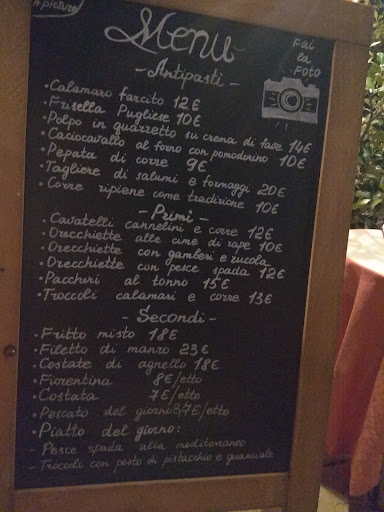 a picture
Menu
Fai
la
FOTO
- Antipasti -
• Calamaro farcito 12€
• Frisella Pugliese 10€
• Polpo in guazzetto su crema di fave 14€
• Caciocavallo al forno con pomodorino 10€
• Pepata di corre 9€
• Tagliere di salumi e formaggi 20€
• Corre ripiene come tradizione 10€
- Primi -
• Cavatelli cannelini e corre 12€
• Orecchiette alle cime di rape 10€
• Orecchiette con gamberi e rucola
• Orecchiette con pesce spada 12€
• Paccheri al tonno 15€
• Troccoli calamari e corre 13€
- Secondi -
• Fritto misto 18€
• Filetto di manzo 23€
• Costate di agnello 18€
• Fiorentina 8€/etto
• Costata 7€/etto
• Pescato del giorno 8,7€/etto
• Piatto del giorno:
- Pesce spada alla mediterraneo
- Troccoli con pesto di pistacchio e guanciale